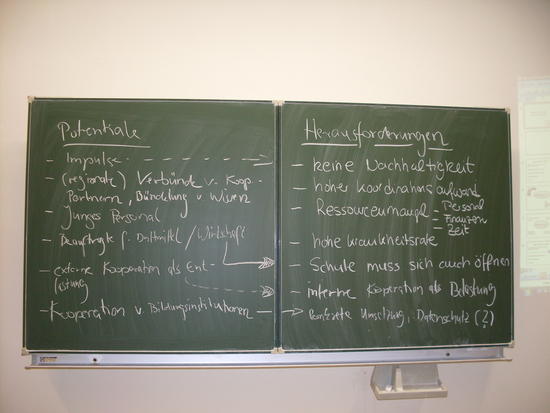 Potentiale
- Impulse
- (regionale) Verbünde v. Koop.
Partnern, Bündelung v Wissen
- junges Personal
- Beauftragte f. Drittmittel / Wirtschaft
- externe Kooperation als Ent-
lastung
- Kooperation v. Bildungsinstitutionen
Herausforderungen
- keine Nachhaltigkeit
- hoher Koordinationsaufwand
- Ressourcenmangel - Personal
- Finanzen
- Zeit
- hohe Krankheitsrate
- Schule muss sich auch öffnen
- interne Kooperation als Belastung
konkrete Umsetzung, Datenschutz (?)